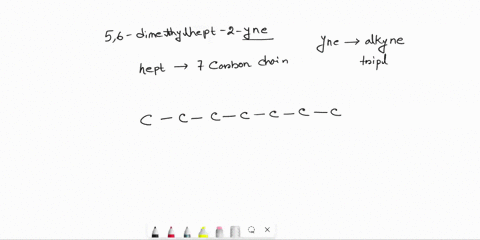 5,6-dimethylhept-2-yne
yne → alkyne
tripl
hept → 7 Carbon chain
C - C - C - C - C - C - C